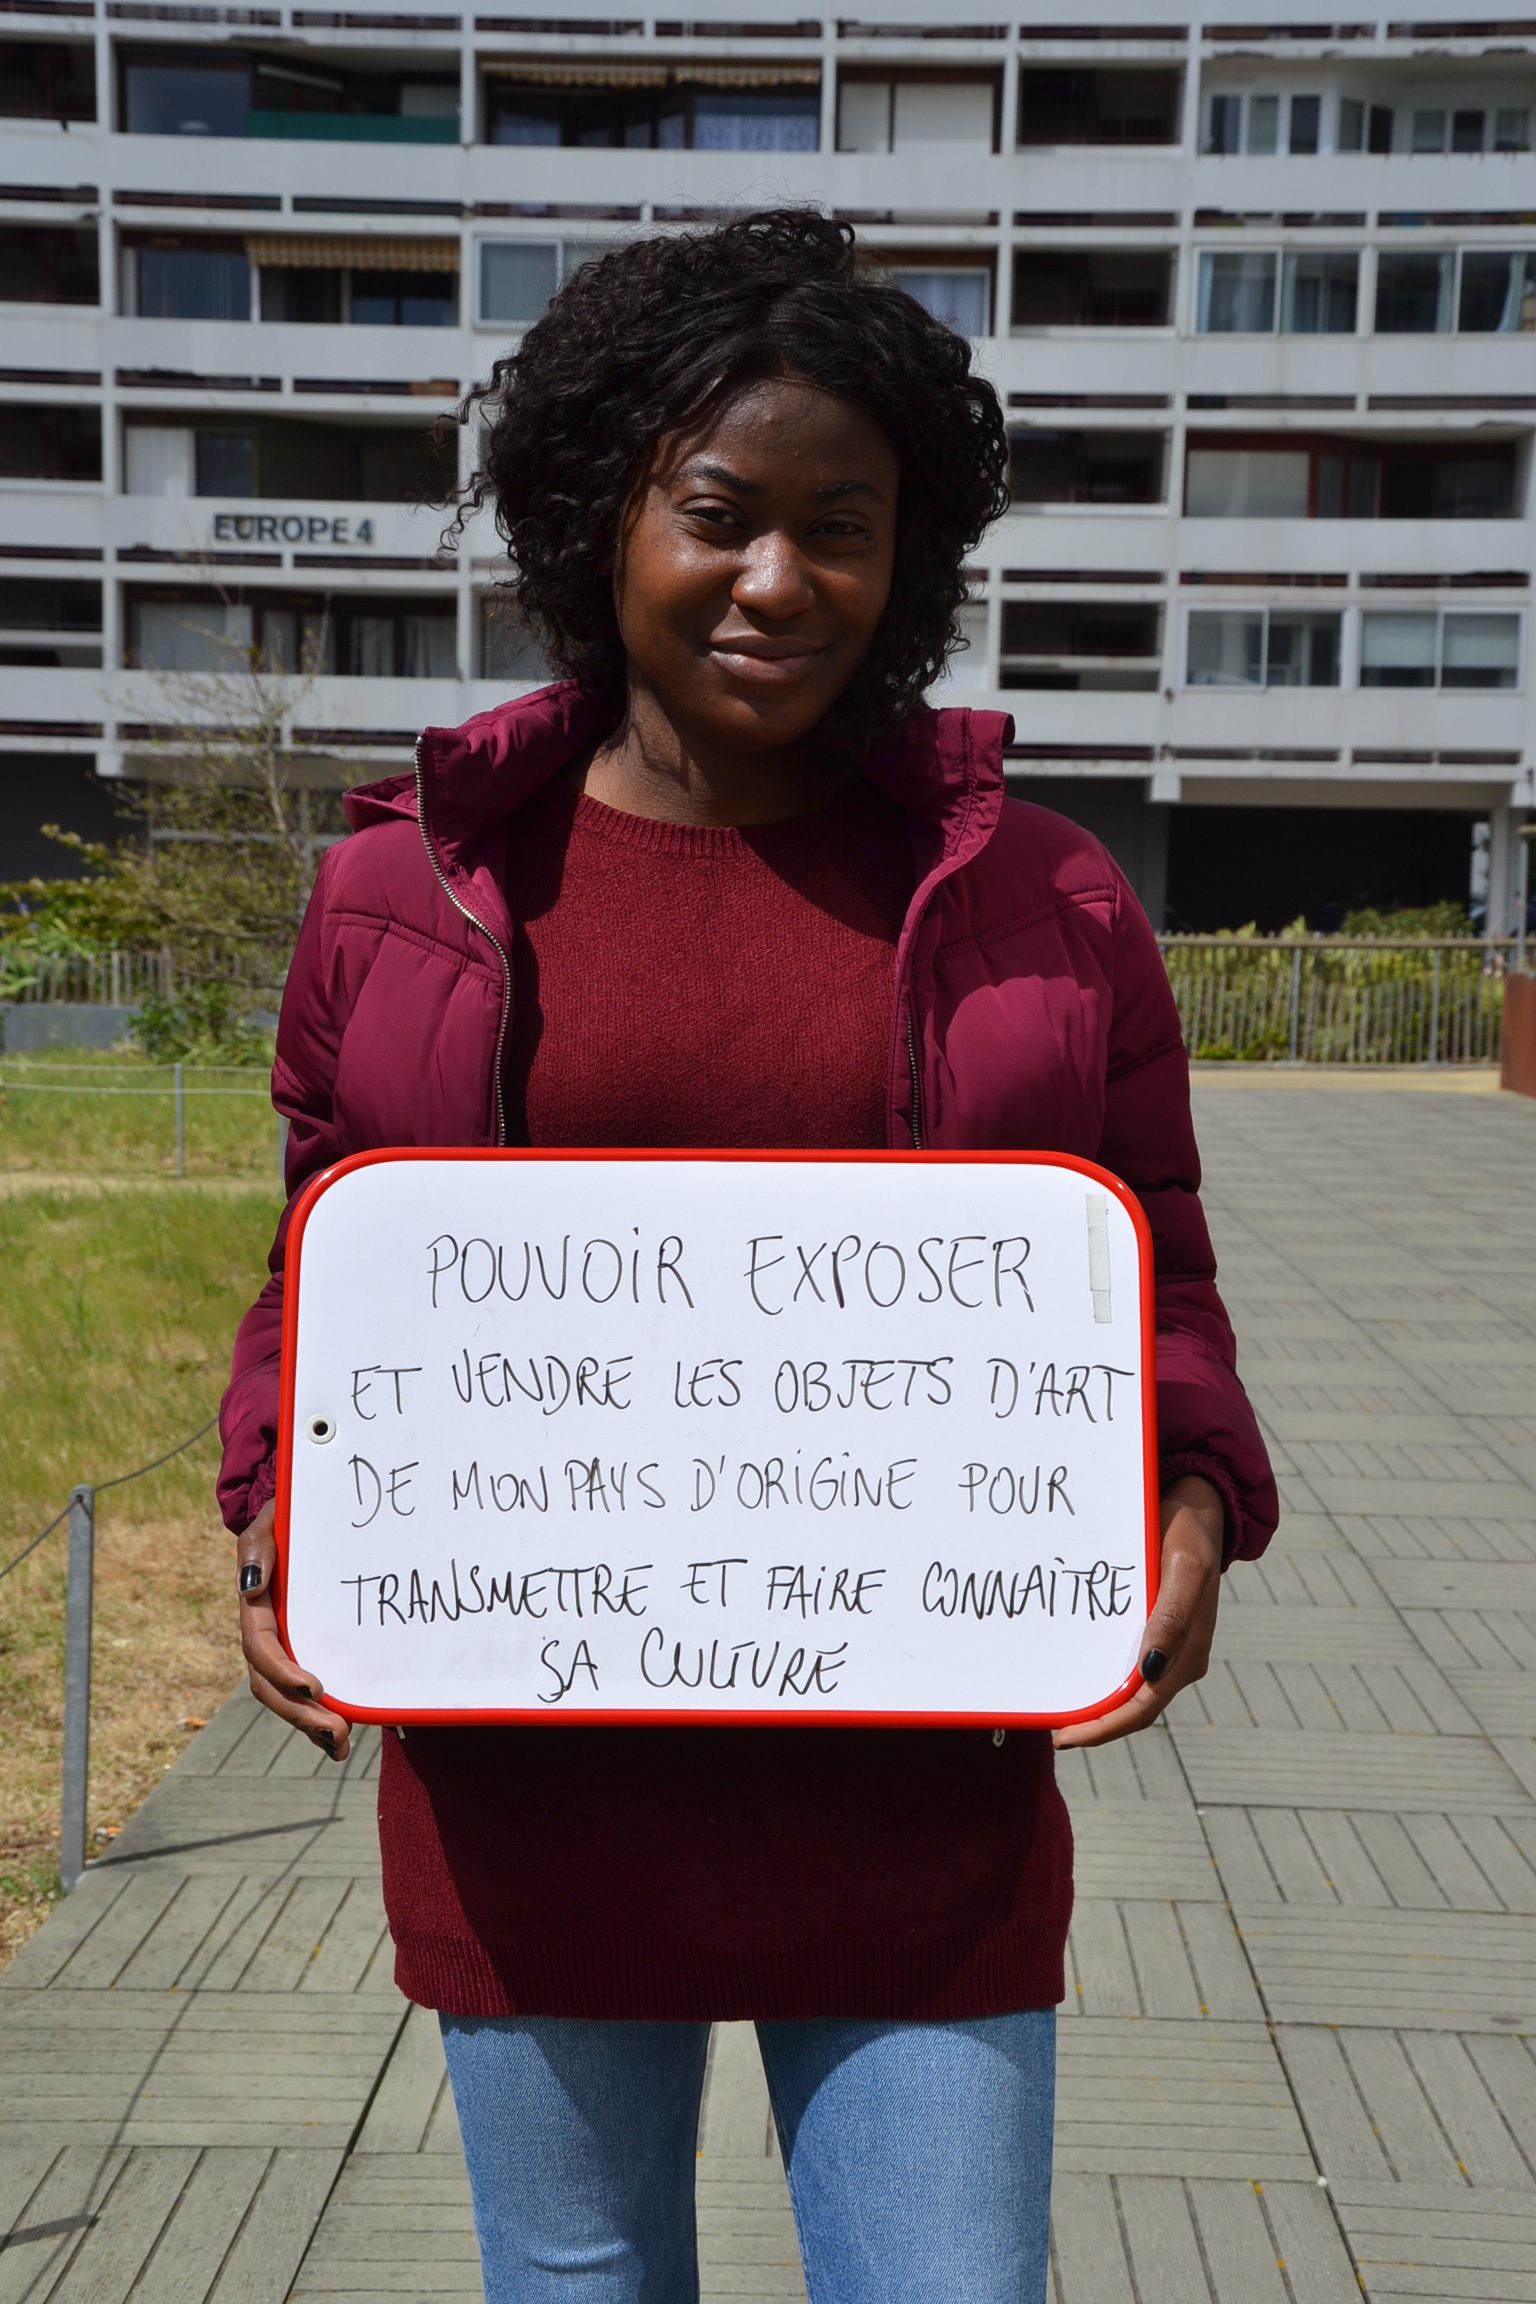 EUROPE 4
POUVOiR EXPOSER
ET VENDRE LES OBJETS D'ART
DE MON PAYS D'ORiGiNE POUR
TRANSMETTRE ET FAiRE CONNAîTRE
SA CULTURE